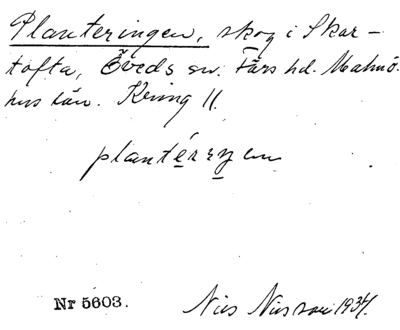 Planteringen, skog i Skar-
tofta, Öveds sn. Färs hd. Malmö-
hus län. Kring 11.
plantérŋen
Nr 5603. Nils Nilsson 1934.